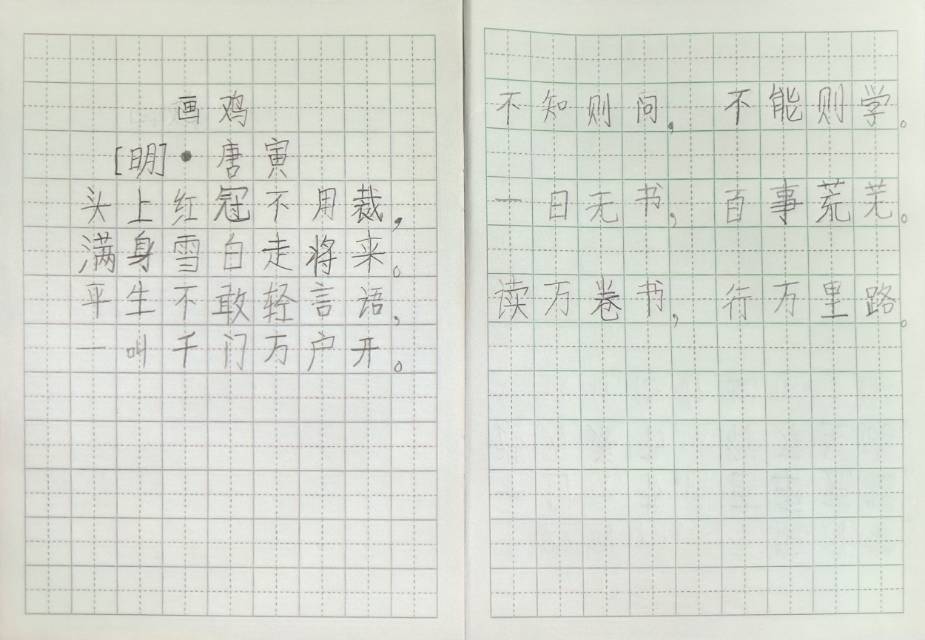 画鸡
[明]·唐寅
头上红冠不用裁,
满身雪白走将来。
平生不敢轻言语,
一叫千门万户开。
不知则问,不能则学。
一日无书,百事荒芜。
读万卷书,行万里路。